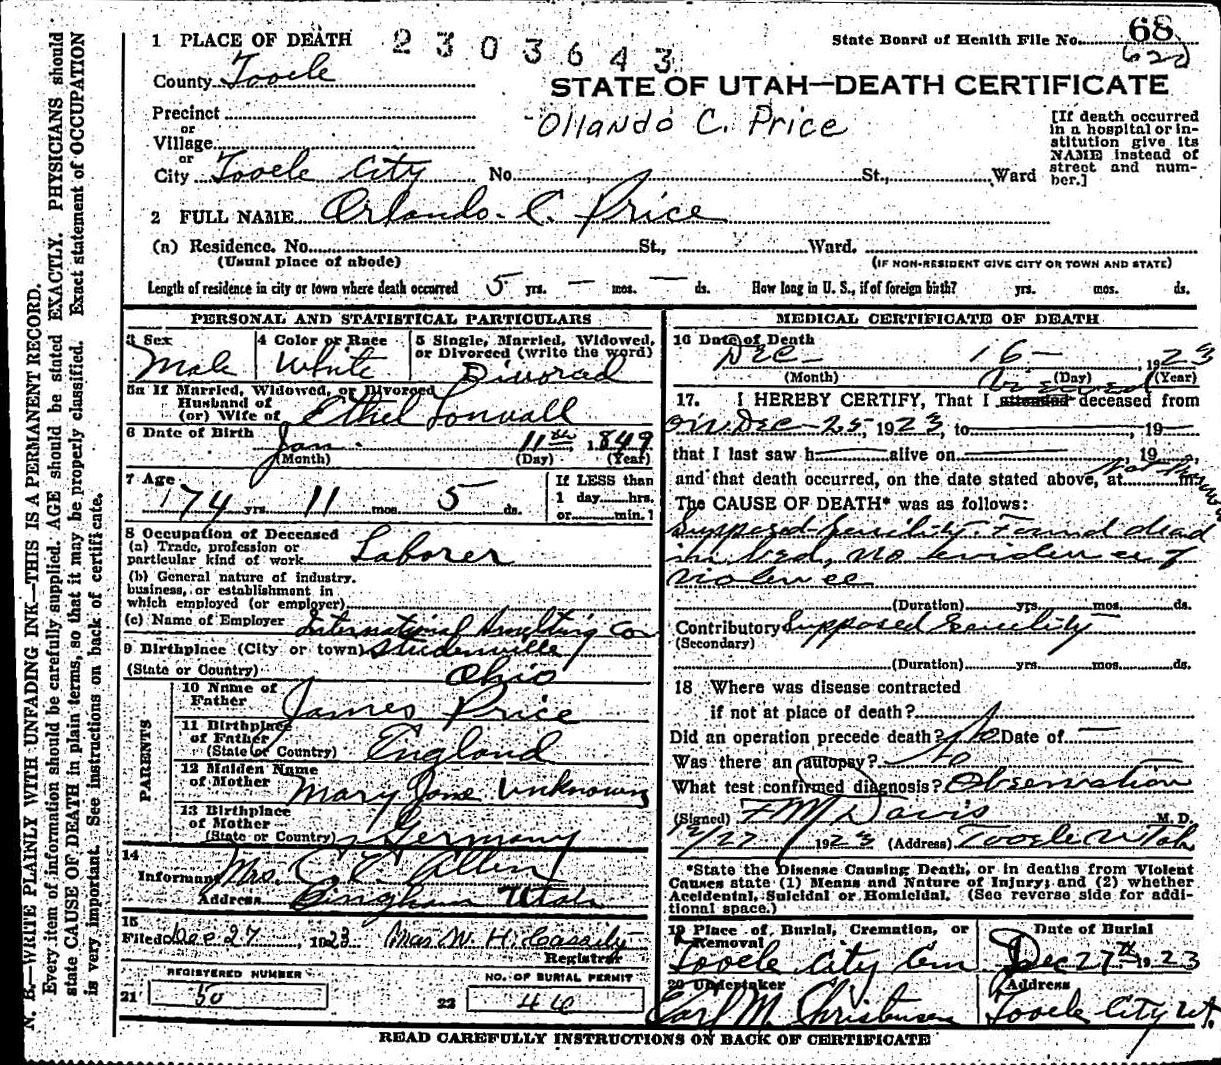 1 PLACE OF DEATH 2303643
State Board of Health File No. 68
620
County Tooele
STATE OF UTAH—DEATH CERTIFICATE
Precinct
Orlando C. Price
or
Village
or
City Tooele City No. St., Ward
[If death occurred
in a hospital or in-
stitution give its
NAME instead of
street and num-
ber.]
2 FULL NAME Orlando C. Price
(a) Residence. No. St., Ward.
(Usual place of abode) (IF NON-RESIDENT GIVE CITY OR TOWN AND STATE)
Length of residence in city or town where death occurred 5 yrs. — mos. — ds. How long in U. S., if of foreign birth? yrs. mos. ds.
PERSONAL AND STATISTICAL PARTICULARS
3 Sex Male
4 Color or Race White
5 Single, Married, Widowed,
or Divorced (write the word)
Divorced
5a If Married, Widowed, or Divorced
Husband of
(or) Wife of Ethel
6 Date of Birth
Jan. 11th, 1849
(Month) (Day) (Year)
7 Age
74 yrs. 11 mos. 5 ds.
If LESS than
1 day hrs.
or min.?
8 Occupation of Deceased
(a) Trade, profession or
particular kind of work Laborer
(b) General nature of industry,
business, or establishment in
which employed (or employer)
(c) Name of Employer International Smelting Co
9 Birthplace (City or town)
(State or Country) Ohio
PARENTS
10 Name of
Father James Price
11 Birthplace
of Father
(State or Country) England
12 Maiden Name
of Mother Mary Jane Unknown
13 Birthplace
of Mother
(State or Country) Germany
14
Informant Mrs. C. E. Allen
Address Bingham Utah
15
Filed Dec 27, 1923 Mrs W. H. Cassity
Registrar
REGISTERED NUMBER
21 50
NO. OF BURIAL PERMIT
22
MEDICAL CERTIFICATE OF DEATH
16 Date of Death
Dec— 16—, 1923
(Month) (Day) (Year)
viewed
17. I HEREBY CERTIFY, That I attended deceased from
on Dec—25, 1923, to , 19
that I last saw h alive on , 19
and that death occurred, on the date stated above, at Not Known m.
The CAUSE OF DEATH* was as follows:
Supposed Senility. Found dead
in bed, no evidence of
violence
(Duration) yrs. mos. ds.
Contributory Supposed Senility
(Secondary)
(Duration) yrs. mos. ds.
18 Where was disease contracted
if not at place of death?
Did an operation precede death? No Date of —
Was there an autopsy? No
What test confirmed diagnosis? Observation
(Signed) F M Davis M. D.
12/27 1923 (Address) Tooele Utah
*State the Disease Causing Death, or in deaths from Violent
Causes state (1) Means and Nature of Injury; and (2) whether
Accidental, Suicidal or Homicidal. (See reverse side for addi-
tional space.)
19 Place of Burial, Cremation, or
Removal
Tooele City Cem
Date of Burial
Dec 27th 1923
20 Undertaker
Carl M. Christensen
Address
Tooele City Ut.
READ CAREFULLY INSTRUCTIONS ON BACK OF CERTIFICATE
N. B.—WRITE PLAINLY WITH UNFADING INK—THIS IS A PERMANENT RECORD.
Every item of information should be carefully supplied. AGE should be stated EXACTLY. PHYSICIANS should
state CAUSE OF DEATH in plain terms, so that it may be properly classified. Exact statement of OCCUPATION
is very important. See instructions on back of certificate.